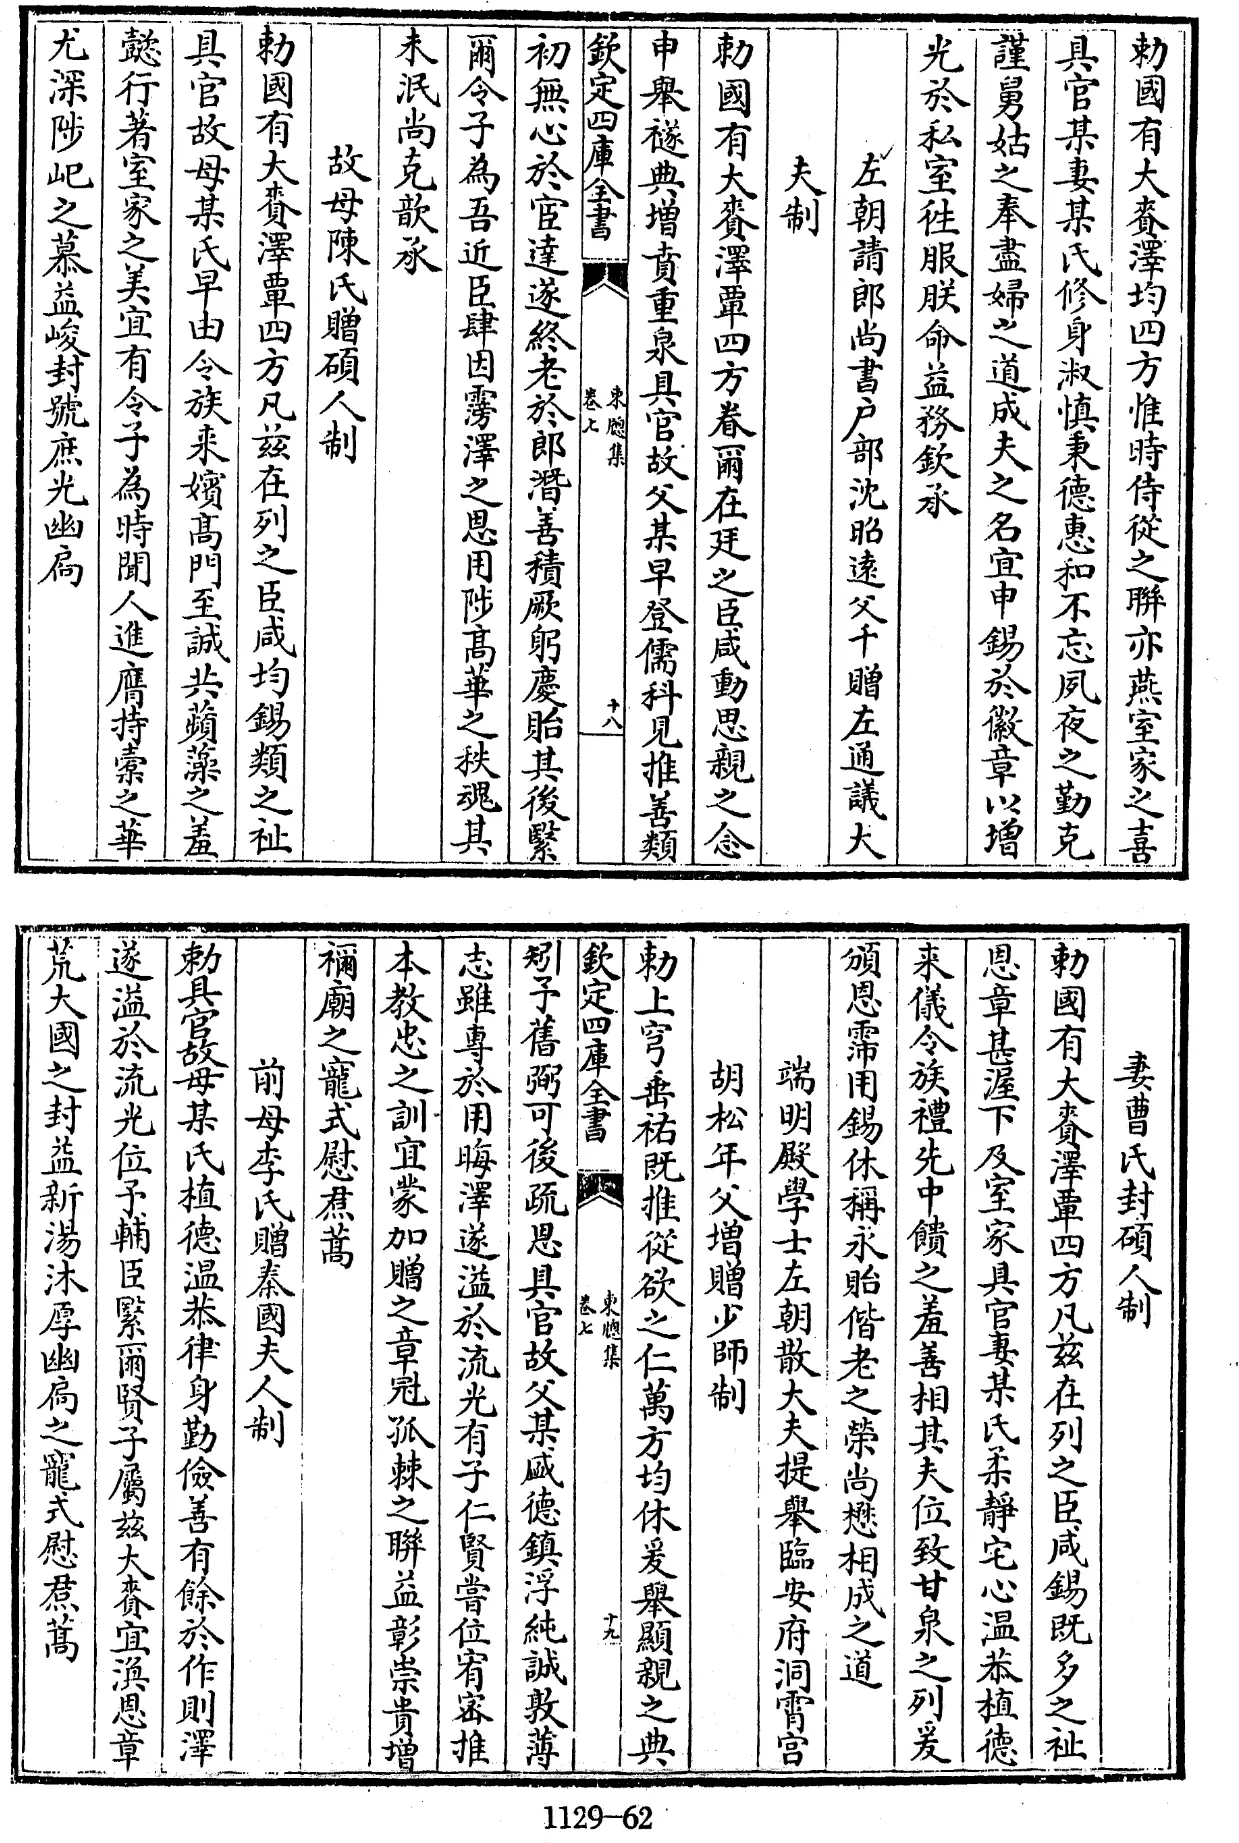 勅國有大賚澤均四方惟時侍從之聯亦燕室家之喜
具官某妻某氏修身淑慎秉德惠和不忘夙夜之勤克
謹舅姑之奉盡婦之道成夫之名宜申錫於徽章以增
光於私室往服朕命益務欽承
左朝請郎尚書户部沈昭遠父千贈左通議大
夫制
勅國有大賚澤覃四方眷爾在廷之臣咸動思親之念
申舉襚典增賁重泉具官故父某早登儒科見推善類
欽定四庫全書
東牎集
卷七
十八
初無心於宦達遂終老於郎潛善積厥躬慶貽其後緊
爾令子為吾近臣肆因霶澤之恩用陟髙華之秩魂其
未泯尚克歆承
故母陳氏贈碩人制
勅國有大賚澤覃四方凡兹在列之臣咸均錫類之祉
具官故母某氏早由令族来嬪髙門至誠共蘋藻之羞
懿行著室家之美宜有令子為時聞人進膺持橐之華
尤深陟屺之慕益峻封號庶光幽扃
妻曹氏封碩人制
勅國有大賚澤覃四方凡兹在列之臣咸錫既多之祉
恩章甚渥下及室家具官妻某氏柔靜宅心温恭植德
来儀令族禮先中饋之羞善相其夫位致甘泉之列爰
頒恩霈用錫休稱永貽偕老之榮尚懋相成之道
端明殿學士左朝散大夫提舉臨安府洞霄宫
胡松年父増贈少師制
勅上穹垂祐既推從欲之仁萬方均休爰舉顯親之典
欽定四庫全書
東牎集
卷七
十九
矧予舊弼可後疏恩具官故父某盛德鎮浮純誠敦薄
志雖専於用晦澤遂溢於流光有子仁賢嘗位宥密推
本教忠之訓宜蒙加贈之章冠孤棘之聯益彰崇貴增
禰廟之寵式慰焄蒿
前母李氏贈秦國夫人制
勅具官故母某氏植德温恭律身勤儉善有餘於作則澤
遂溢於流光位予輔臣緊爾賢子屬兹大賚宜渙恩章
荒大國之封益新湯沐厚幽扃之寵式慰焄蒿
1129-62